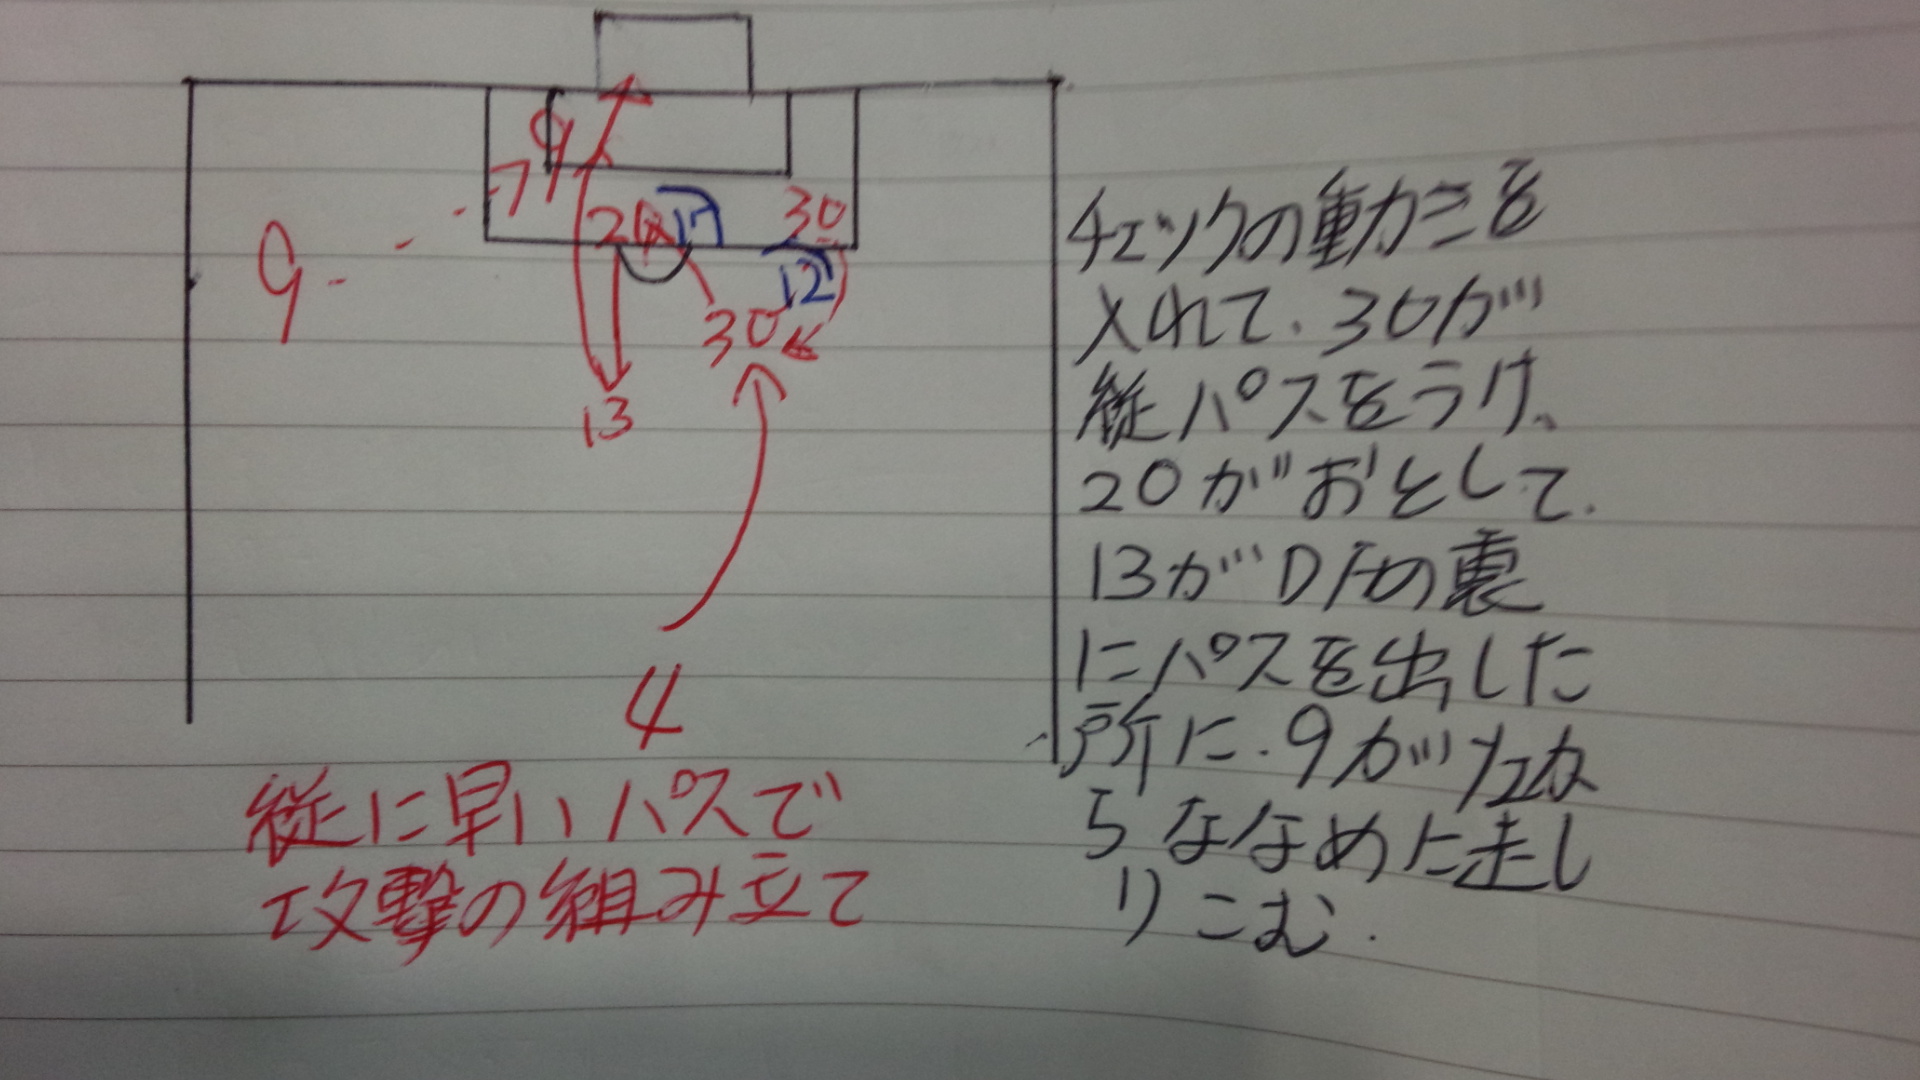 9
9
20
17
30
12
30
13
4
従に早いパスで
攻撃の組み立て
チェックの動きを
入れて、30が
縦パスをうけ、
20がおとして、
13がDFの裏
にパスを出した
所に、9が左か
らななめに走し
りこむ.